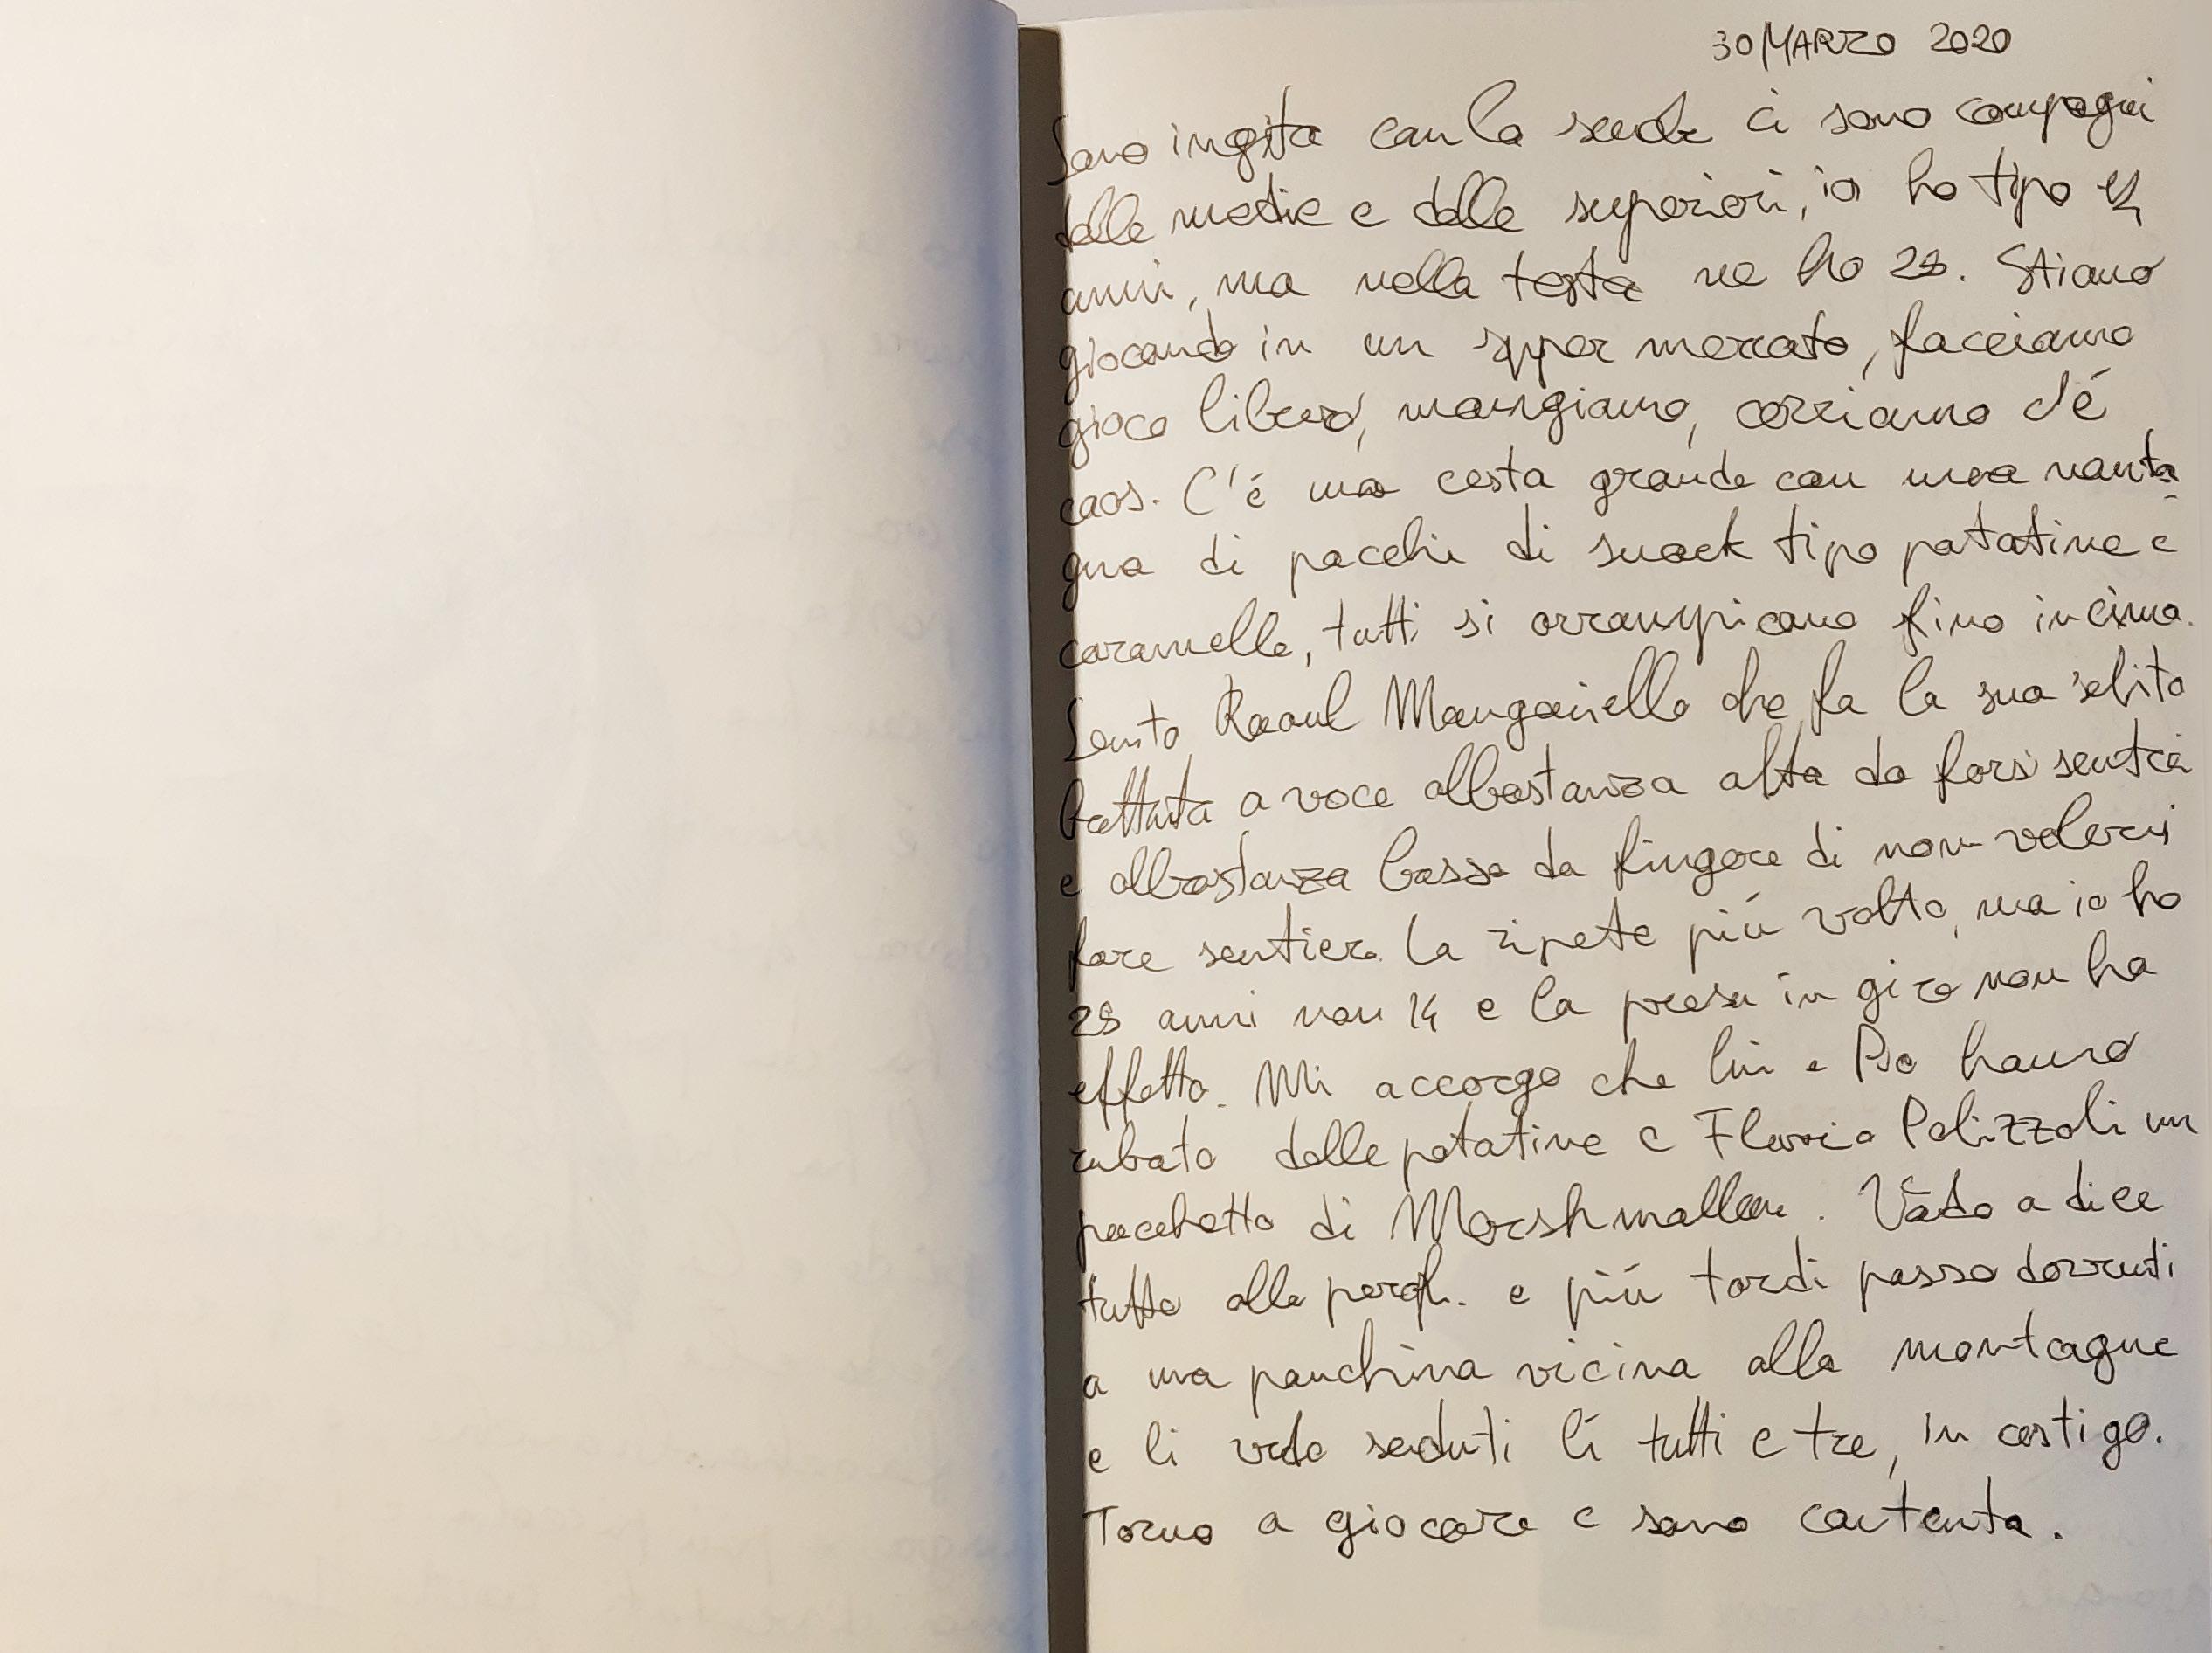 30 MARZO 2020
Sono in gita con la scuola ci sono compagni
delle medie e delle superiori, io ho tipo 14
anni, ma nella testa ne ho 28. Stiamo
giocando in un supermercato, facciamo
gioco libero, mangiamo, corriamo c'é
caos. C'é una cesta grande con una monta
gna di pacchi di snack tipo patatine e
caramelle, tutti si arrampicano fino in cima.
Sento Raoul Manganiello che fa la sua solita
battuta a voce abbastanza alta da farsi sentire
e abbastanza bassa da fingere di non volersi
fare sentire. La ripete piú volte, ma io ho
28 anni non 14 e la presa in giro non ha
effetto. Mi accorgo che lui e hanno
rubato delle patatine e Flavia Polizzoli un
pacchetto di Marshmallow. Vado a dire
tutto alla prof. e piú tardi passo davanti
a una panchina vicina alla montagna
e li vedo seduti lí tutti e tre, in castigo.
Torno a giocare e sono contenta.